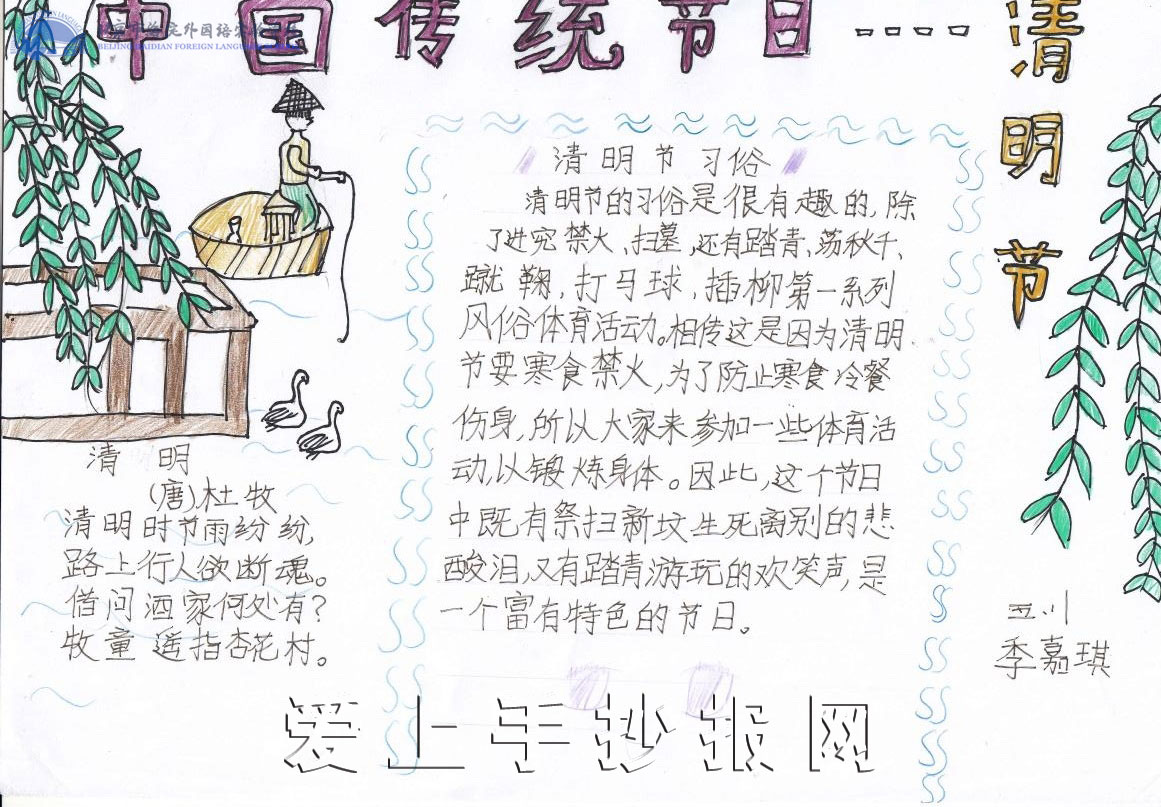 中国传统节日
清明节
BEIJING HAIDIAN FOREIGN LANGU
清明节习俗
清明节的习俗是很有趣的,除
了讲究禁火、扫墓,还有踏青、荡秋千、
蹴鞠,打马球,插柳第一系列
风俗体育活动。相传这是因为清明
节要寒食禁火,为了防止寒食冷餐
伤身,所以大家来参加一些体育活
动,以锻炼身体。因此,这个节日
中既有祭扫新坟生死离别的悲
酸泪,又有踏青游玩的欢笑声,是
一个富有特色的节日。
清明
(唐)杜牧
清明时节雨纷纷,
路上行人欲断魂。
借问酒家何处有?
牧童遥指杏花村。
季嘉琪
爱上手抄报网